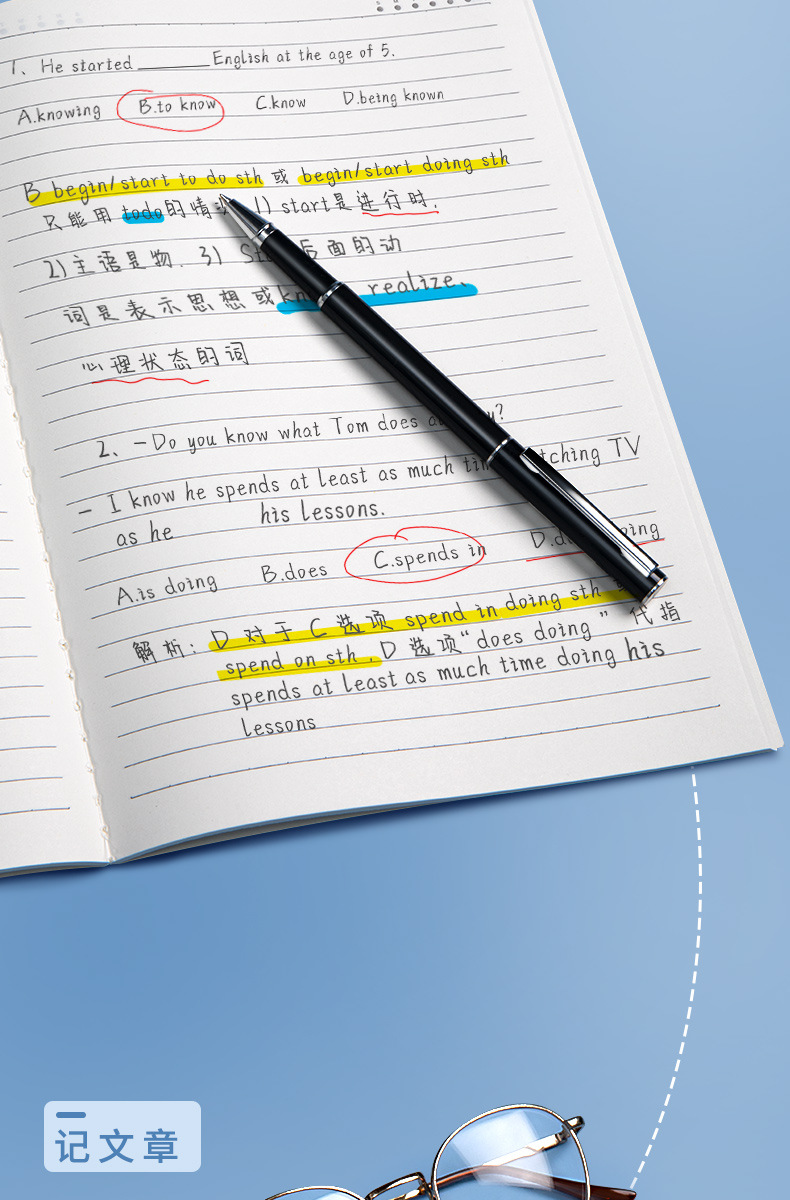 1、He started ______ English at the age of 5.
A.knowing B.to know C.know D.being known
B begin/start to do sth 或 begin/start doing sth
只能用 todo的情 1) start是进行时.
2)主语是物. 3) 后面的动
词是表示思想或 realize、
心理状态的词
2、-Do you know what Tom does
- I know he spends at least as much TV
as he his lessons.
A.is doing B.does C.spends in
解析: D 对于 C 选项 spend in doing sth
spend on sth .D 选项“does doing ” 代指
spends at least as much time doing his
lessons
记文章